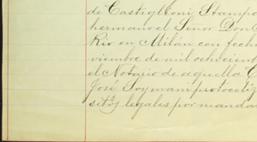 de Castiglioni Stampa
hermano el Señor Don
Rio en Milán con fecha
viembre de mil ochocien
el Notario de aquella C
José Soymani protocoli
sitos legales por manda